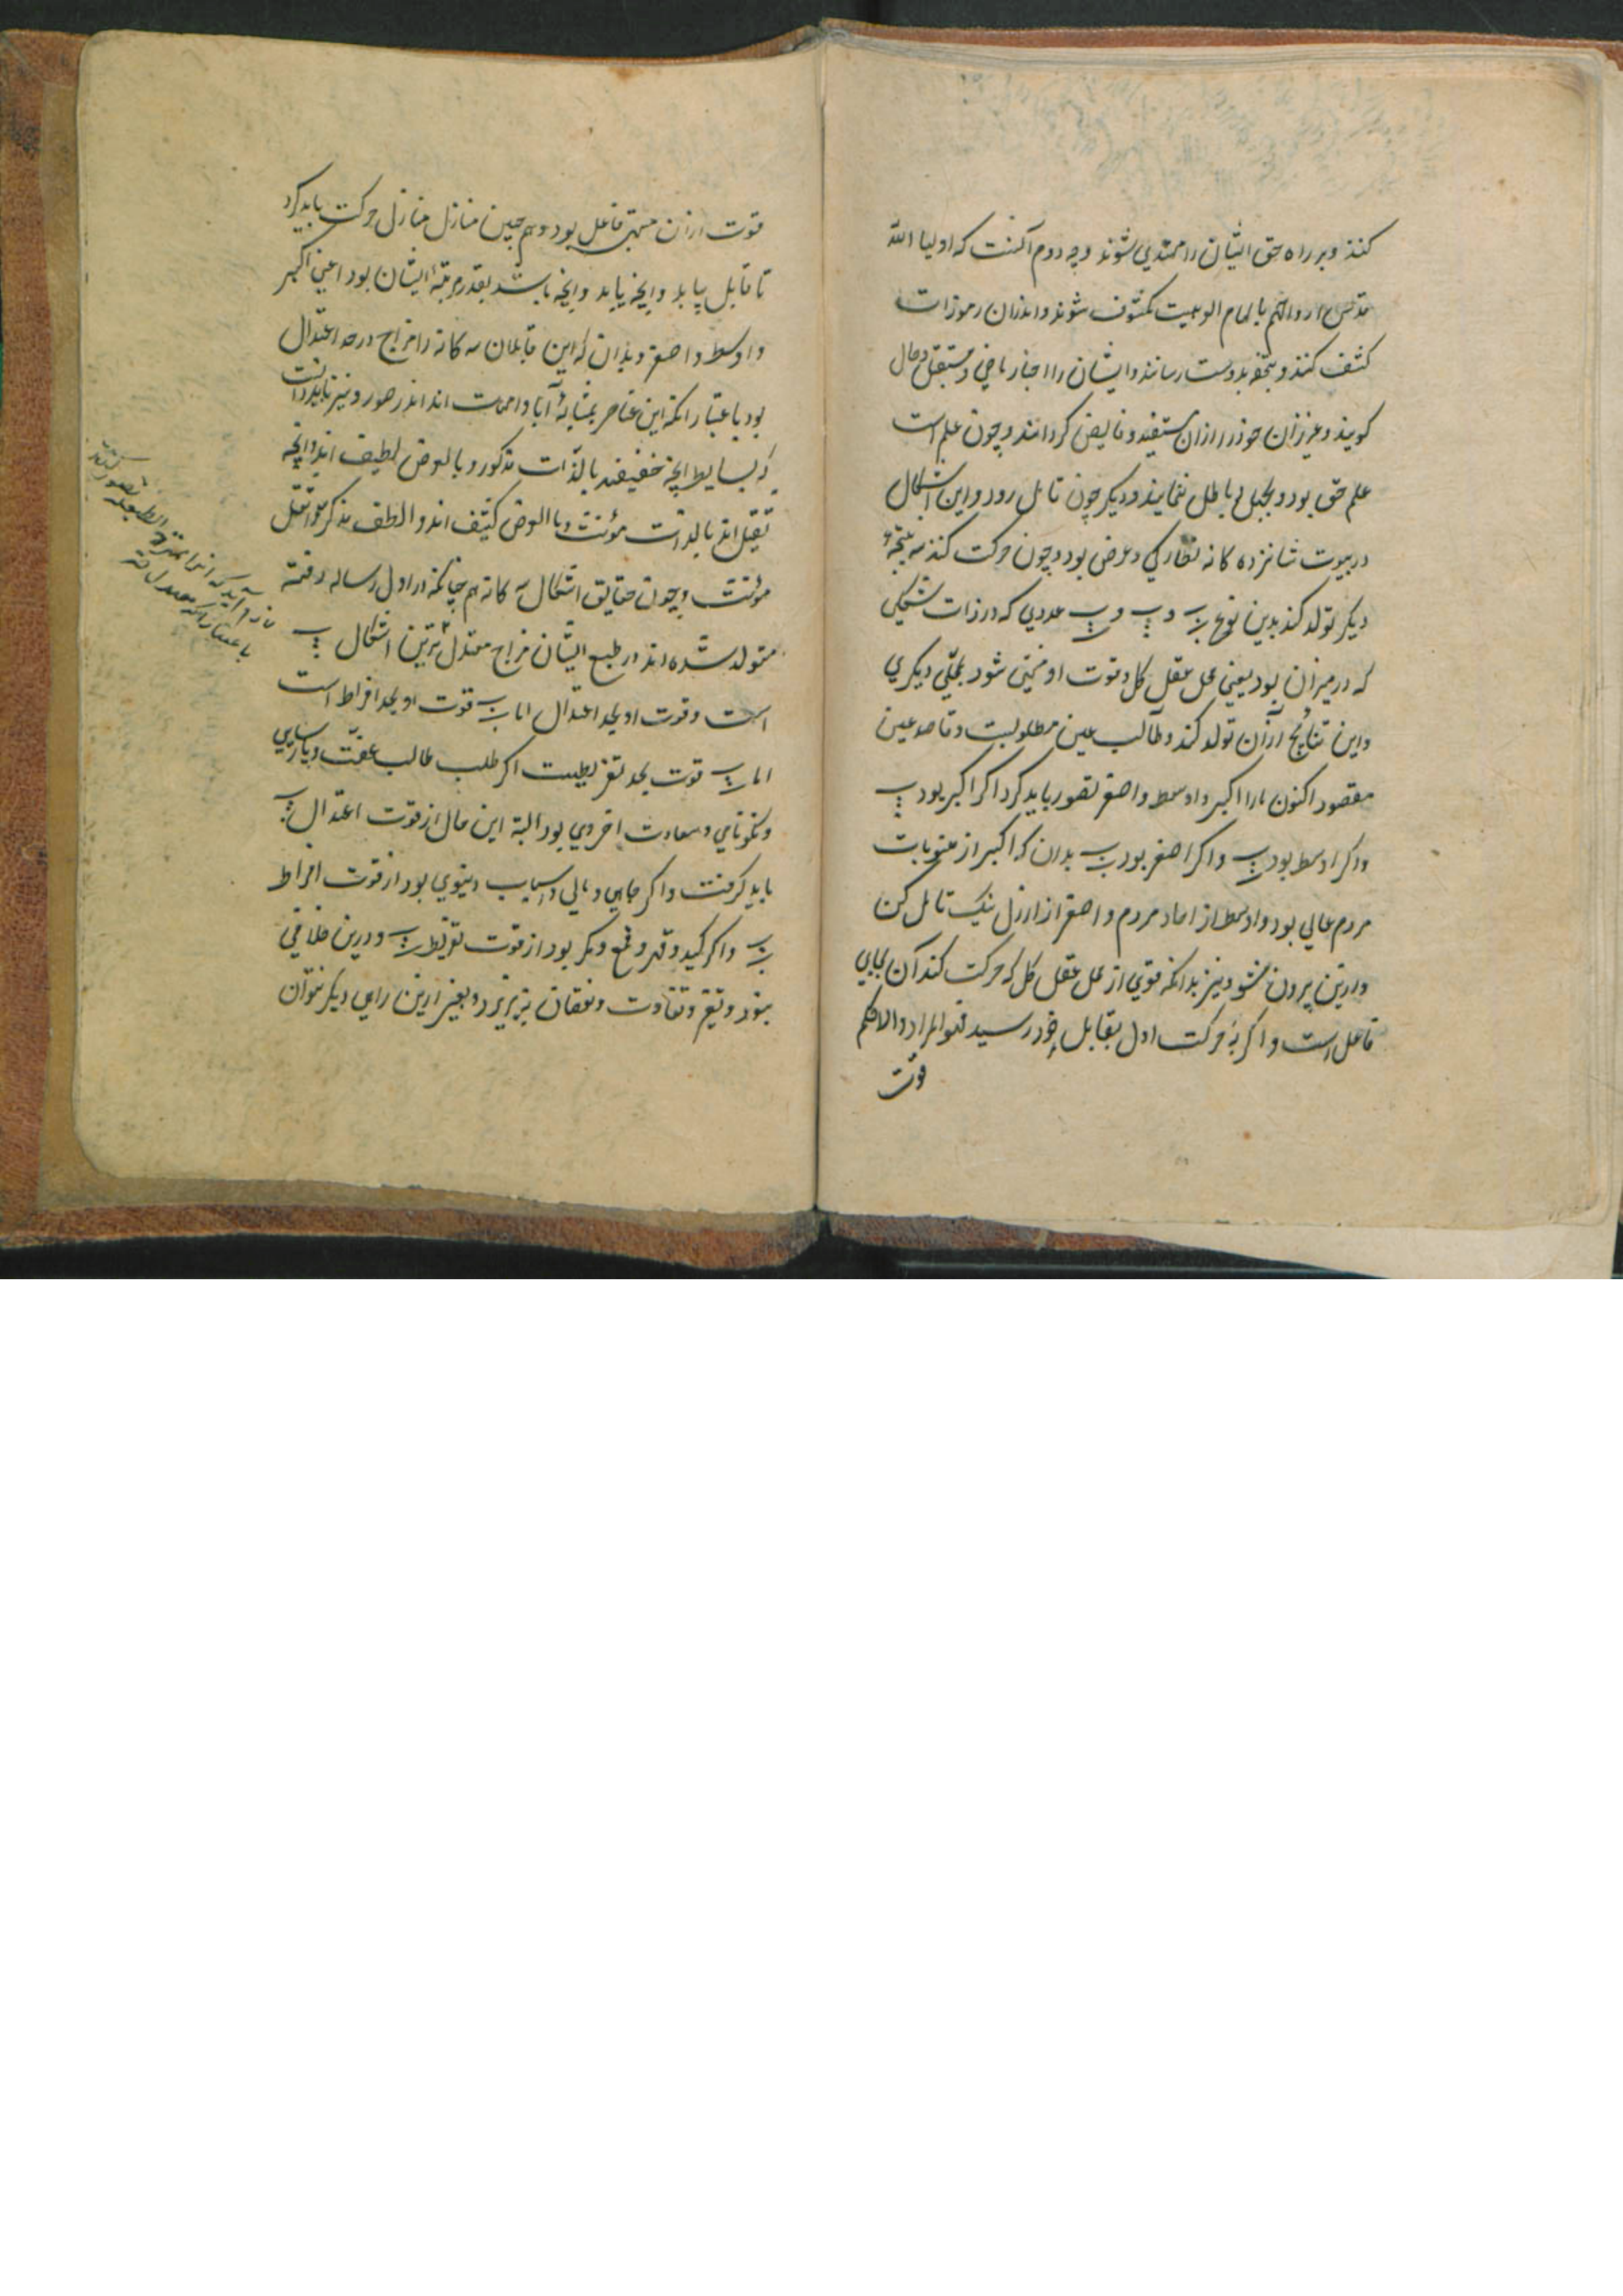 کنند و بر راه حق ایشان را مهتدی شوند وجه دوم آنست که اولیاء الله
قدس ارواحهم با الهام الوهیت مکشوف شوند و اندران رموزات
کشف کنند و بتحفه بدوست رسانند و ایشان را اخبار ماضی و مستقبل و حال
کویند و عزیزان خود را ازان مستفید و فایض کردانند و چون علم است
علم حق بود و بجهل و باطل ننمایند و دیکر چون تامل رود و این اشکال
در بیوت شانزده کانه نظار کی و عرض بود و چون حرکت کند سه نتیجهٔ
دیکر تولد کند بدین نوع و و عددی که در ذات شکلی
که در میزان بود یعنی محل عقل کل و قوت او منجی شود بمحلی دیکری
و این نتایج ازان تولد کند و طالب عین مطلوبست و قاصد عین
مقصود اکنون ما را اکبر و اوسط و اصغر تصور باید کرد اکر اکبر بود
و اکر اوسط بود و اکر اصغر بود بدان که اکبر از منسوبات
مردم عالی بود و اوسط از احاد مردم و اصغر از ارذل نیک تامل کن
و ازین بیرون نشو و نیز بدانکه قوی از محل عقل کل که حرکت کند آن بجای
فاعل است و اکر به حرکت اول بقابل خود رسید فهو المراد و الا حکم
قوت
قوت ازان منتهی فاعل بود و هم چنین منازل منازل حرکت باید کرد
تا قابل بیابد و آنچه یابد و آنچه باشد بقدر مرتبهٔ ایشان بود اعنی اکبر
و اوسط و اصغر و بدان که این قابلان سه کانه را مزاج درجه اعتدال
بود باعتبار انکه این عناصر بمثابهٔ آبا و امهات اند اندر صور و نیز باید دانست
که بسایط آنچه خفیفند بالذات مذکور و بالعرض لطیف اند و آنچه
ثقیل اند بالذات مونث و بالعرض کثیف اند و الطف مذکر و اثقل
مونث و چون حقایق اشکال سه کانه هم چنانکه در اول رساله رقمه
متولد شده اند در طبع ایشان مزاج معتدل ترین اشکال
است و قوت او بحد اعتدال اما قوت او بحد افراط است
اما قوت بحد تفریطیست اکر طلب طالب عفت و پارسایی
و نکونامی و سعادت اخروی بود البته این حال از قوت اعتدال
باید کرفت و اکر جاهی و مالی و اسباب دنیوی بود از قوت افراط
و اکر کید و قهر و قمع و مکر بود از قوت تفریط و درین خلافی
نبود و تغیر و تفاوت و نقصان نپذیرد و بغیر ازین رای دیکر نتوان